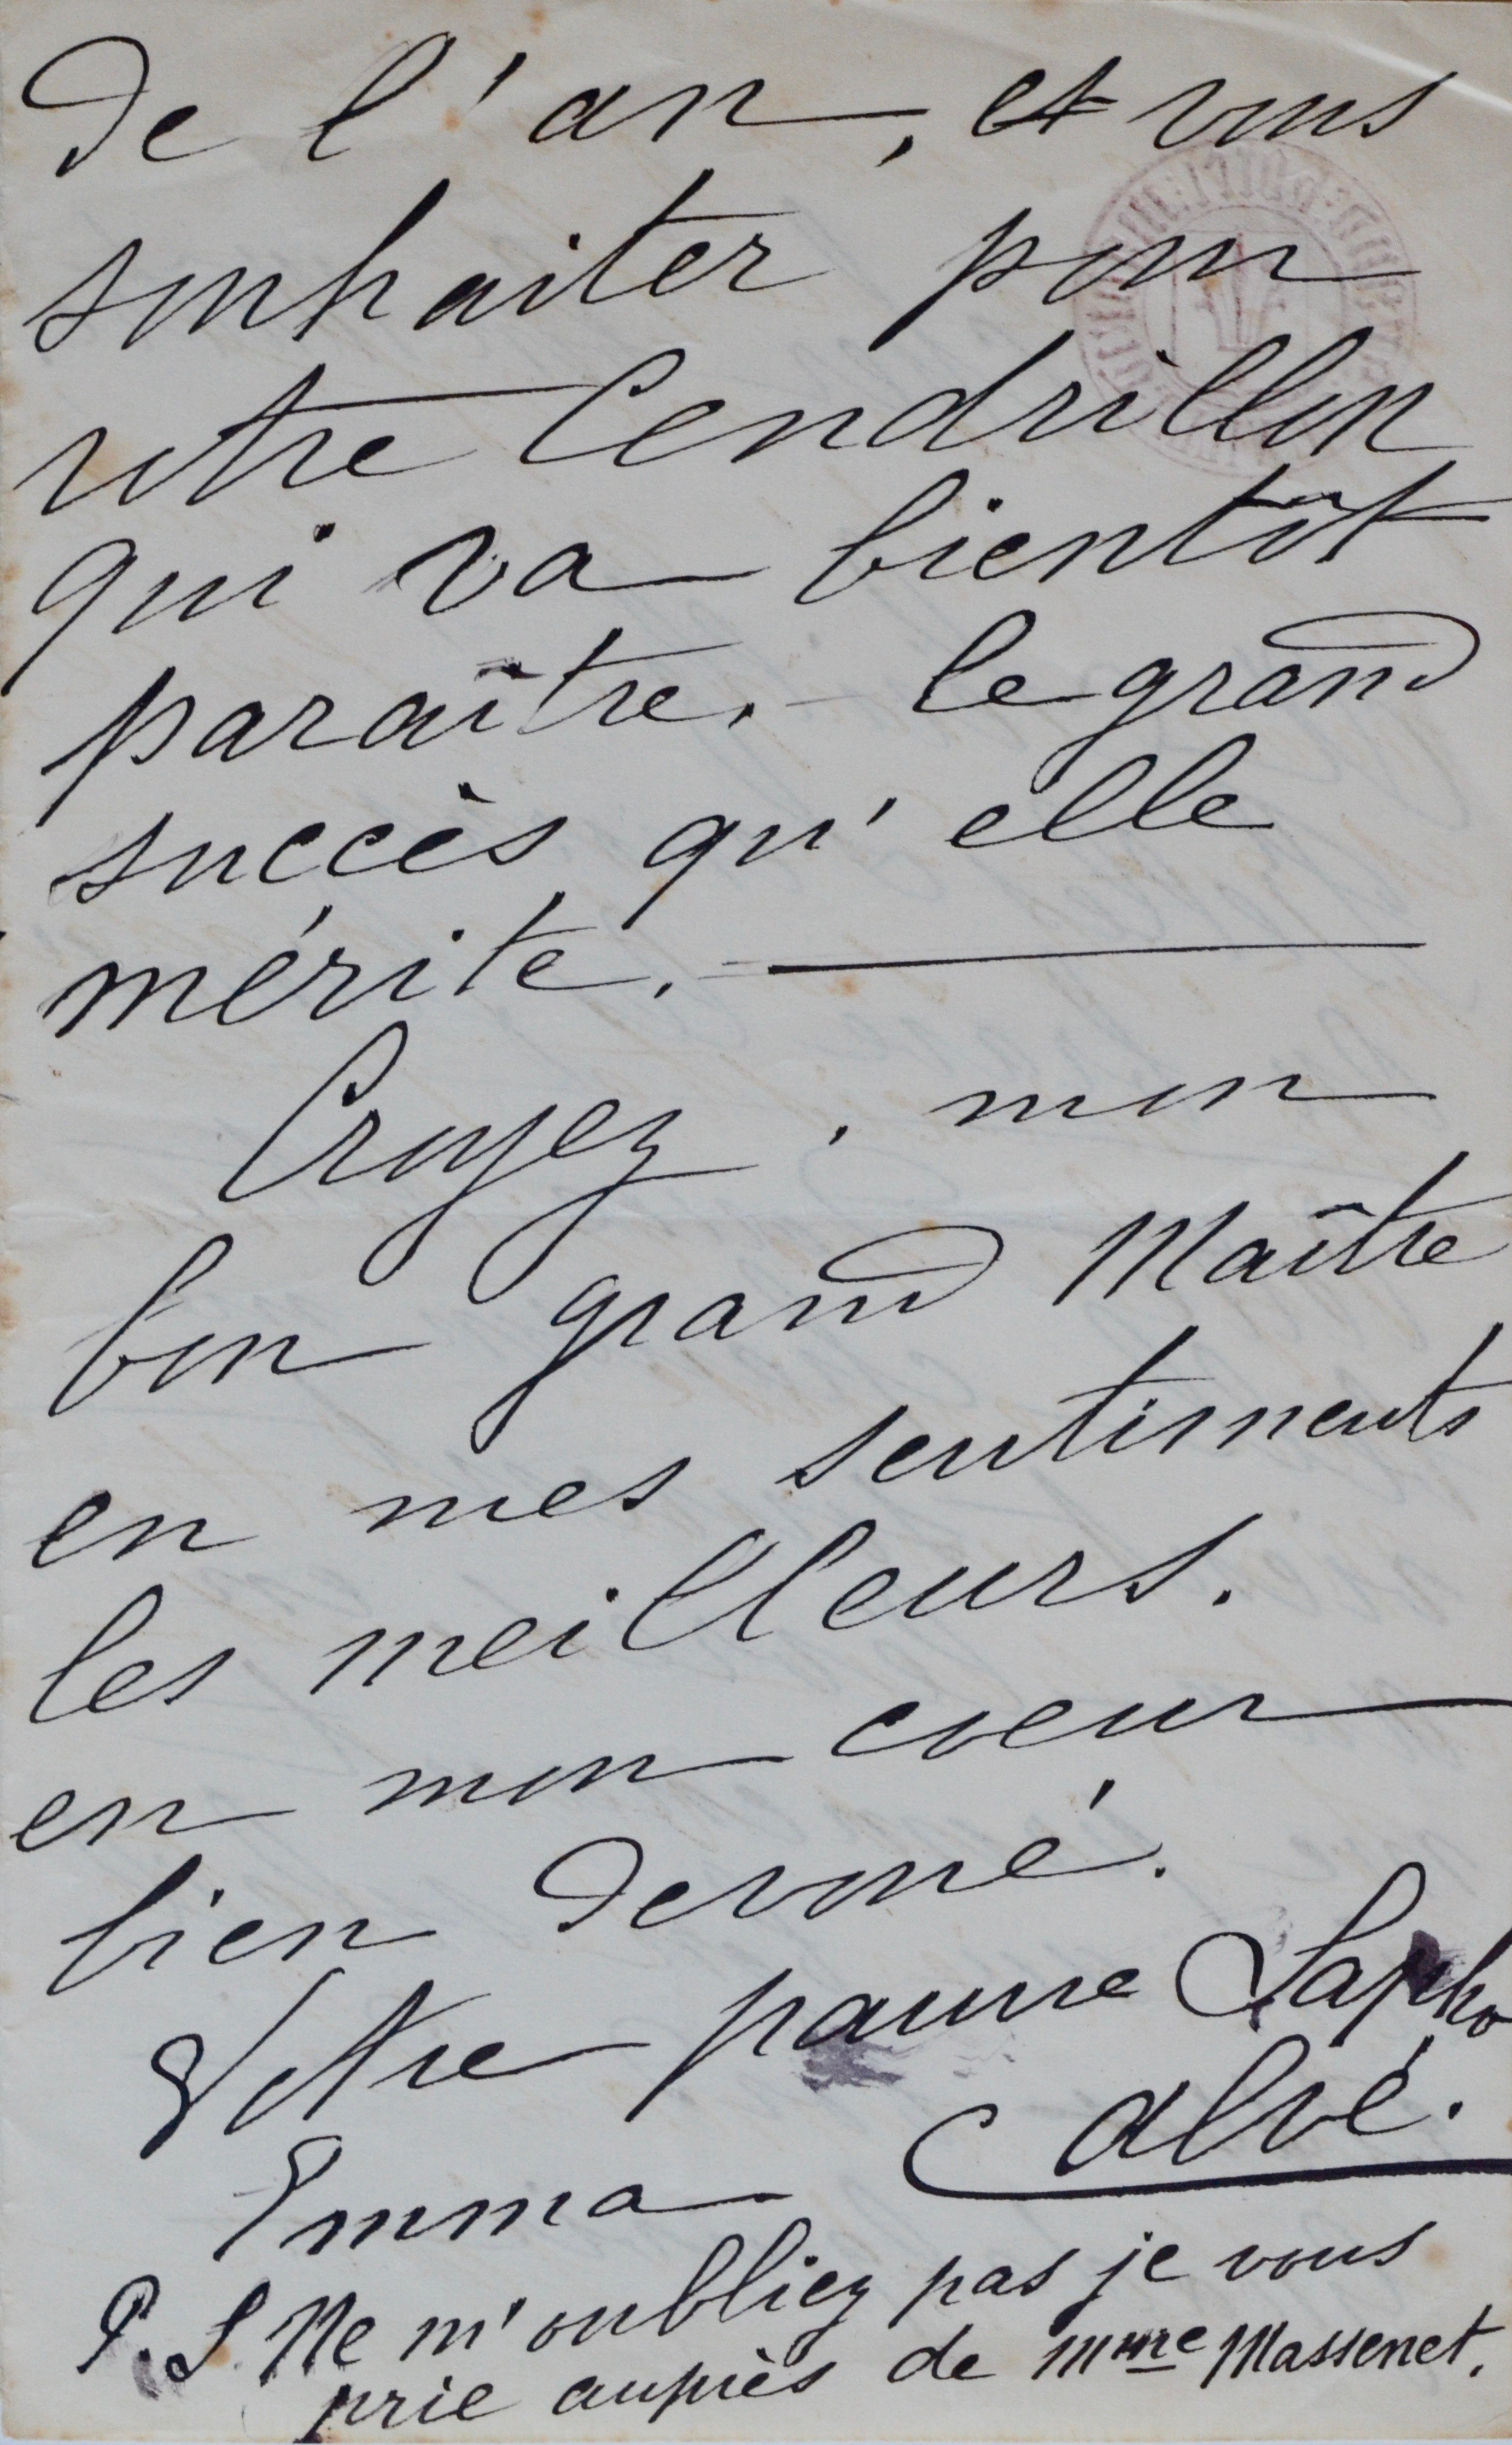 de l'an, et vous
souhaiter pour
votre Cendrillon
qui va bientôt
paraître. - le grand
succès qu'elle
mérite. —
Croyez, mon
bon grand Maître
en mes sentiments
les meilleurs.
en mon coeur
bien devoué.
Votre pauvre Sapho
Emma Calvé.
P. S. Ne m'oubliez pas je vous
prie auprès de Mme Massenet.